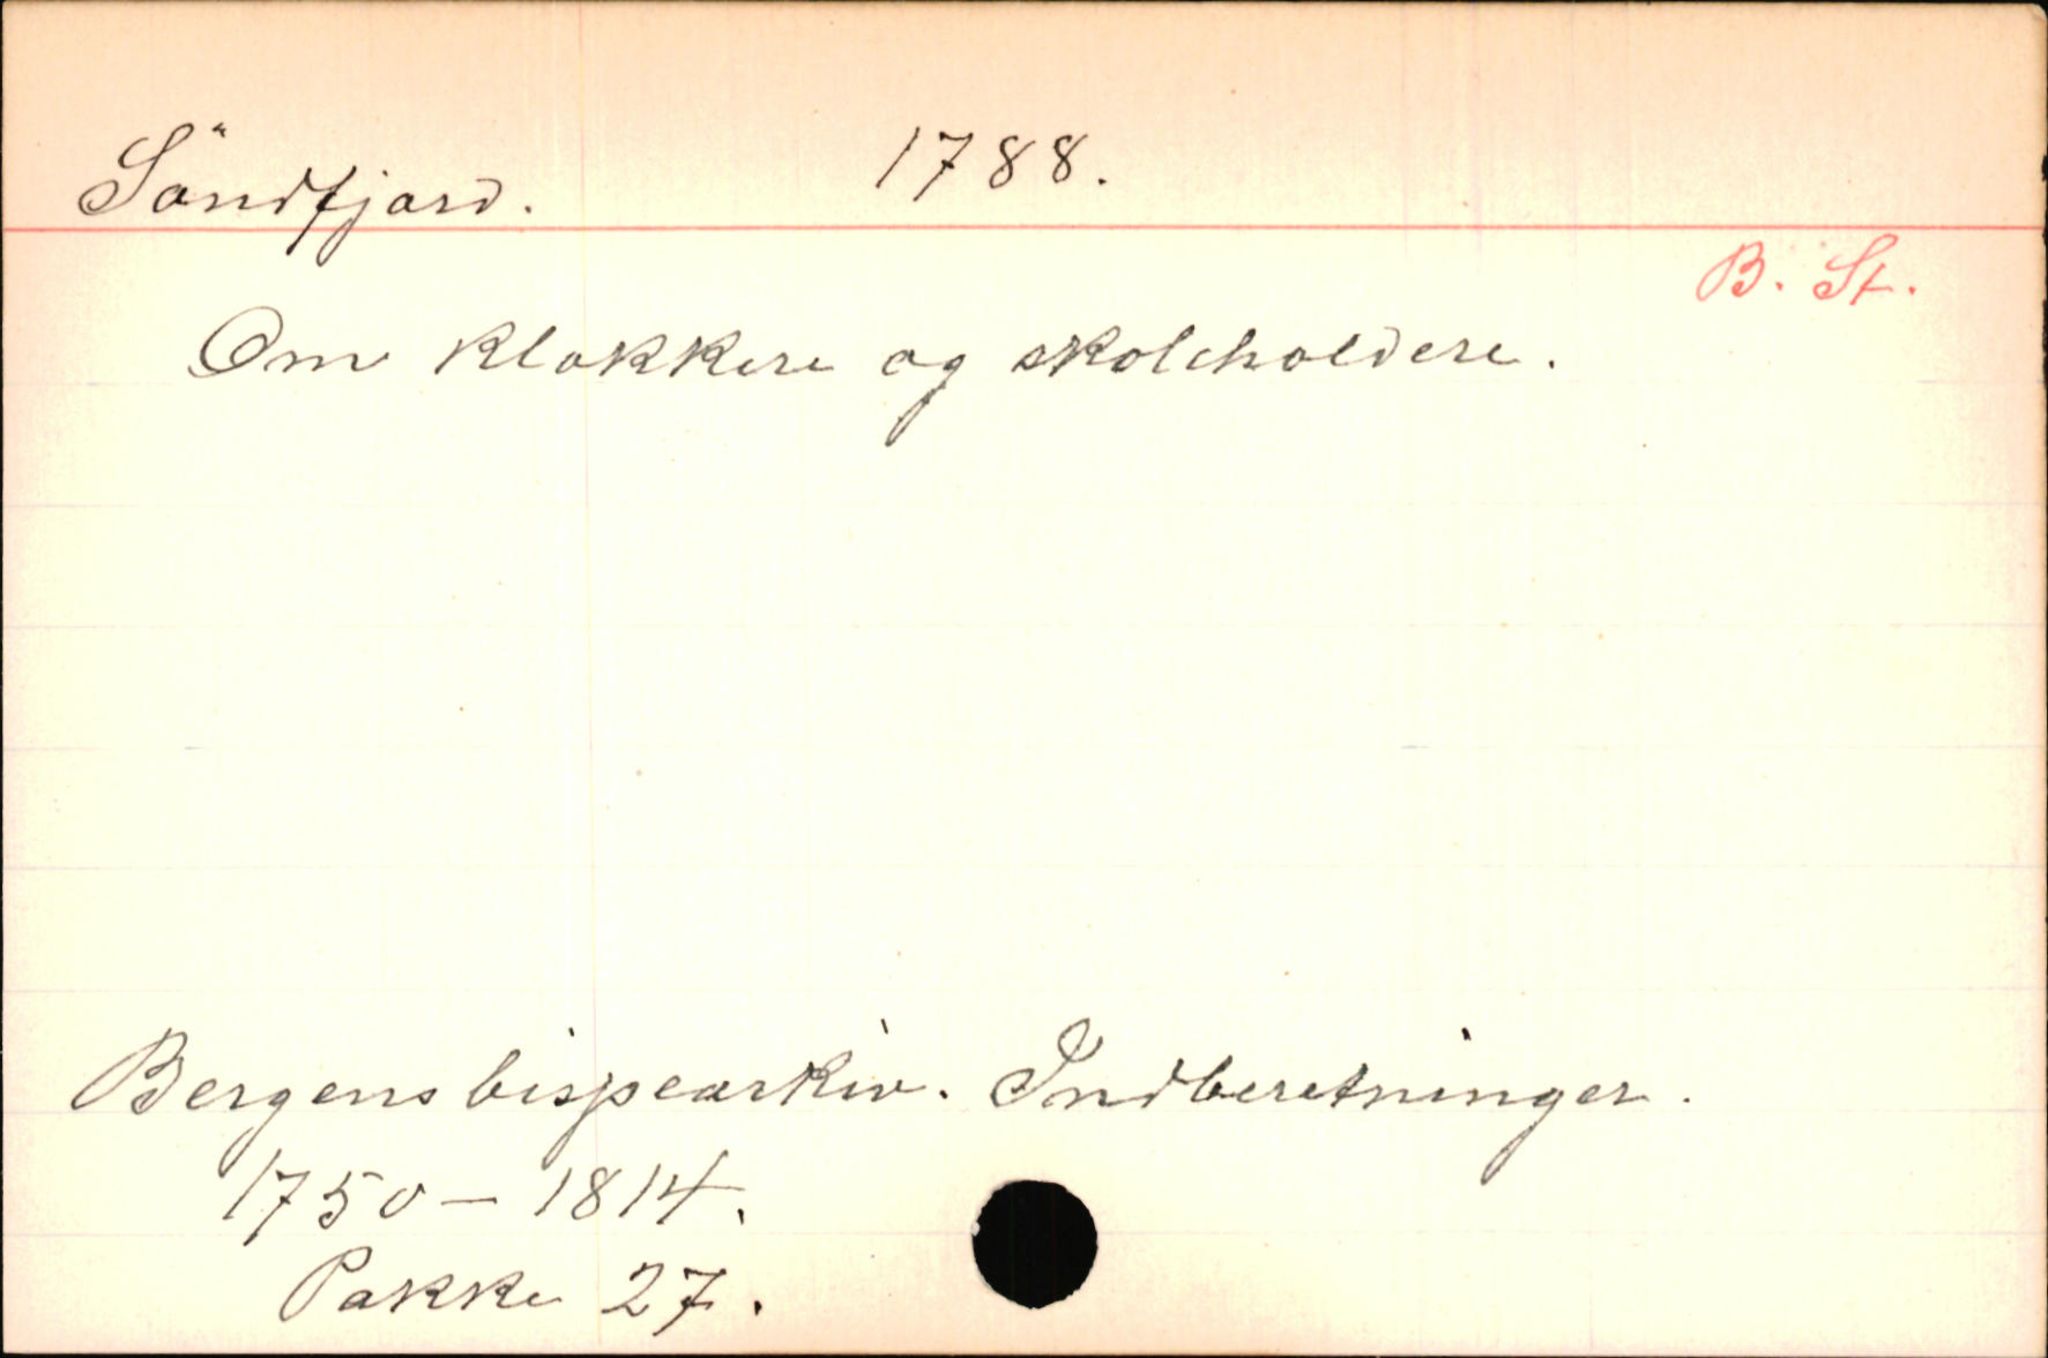 Söndfjord. 1788.
B. St.
Om klokkere og skoleholdere.
Bergens bispearkiv. Indberetninger.
1750 – 1814.
Pakke 27.